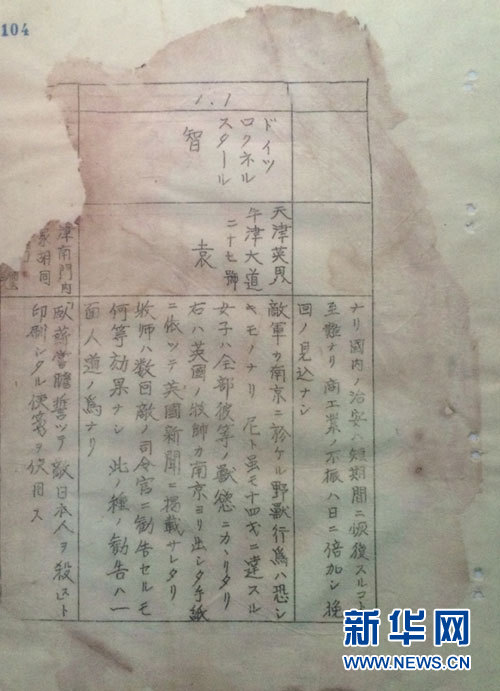 104
1.1
ドイツ
ロクネル
スタール
智
天津英界
牛津大道
二十七號
袁
ナリ國内ノ治安ハ短期間ニ恢復スルコト
至難ナリ商工業ノ不振ハ日ニ倍加シ挽
回ノ見込ナシ
敵軍ノ南京ニ於ケル野獸行為ハ恐シ
キモノナリ 尼ト虽モ十四才ニ達スル
女子ハ全部彼等ノ獸慾ニカヽリタリ
右ハ英國ノ牧師カ南京ヨリ出シタ手紙
ニ依ツテ英國新聞ニ掲載サレタリ
牧师ハ数回敵ノ司令官ニ勧告セルモ
何等効果ナシ 此ノ種ノ勧告ハ一
面人道ノ為ナリ
津南門内
家胡同
「臥薪嘗膽誓ツテ敵日本人ヲ殺スト
印刷シタル便箋ヲ使用ス
新华网
WWW.NEWS.CN